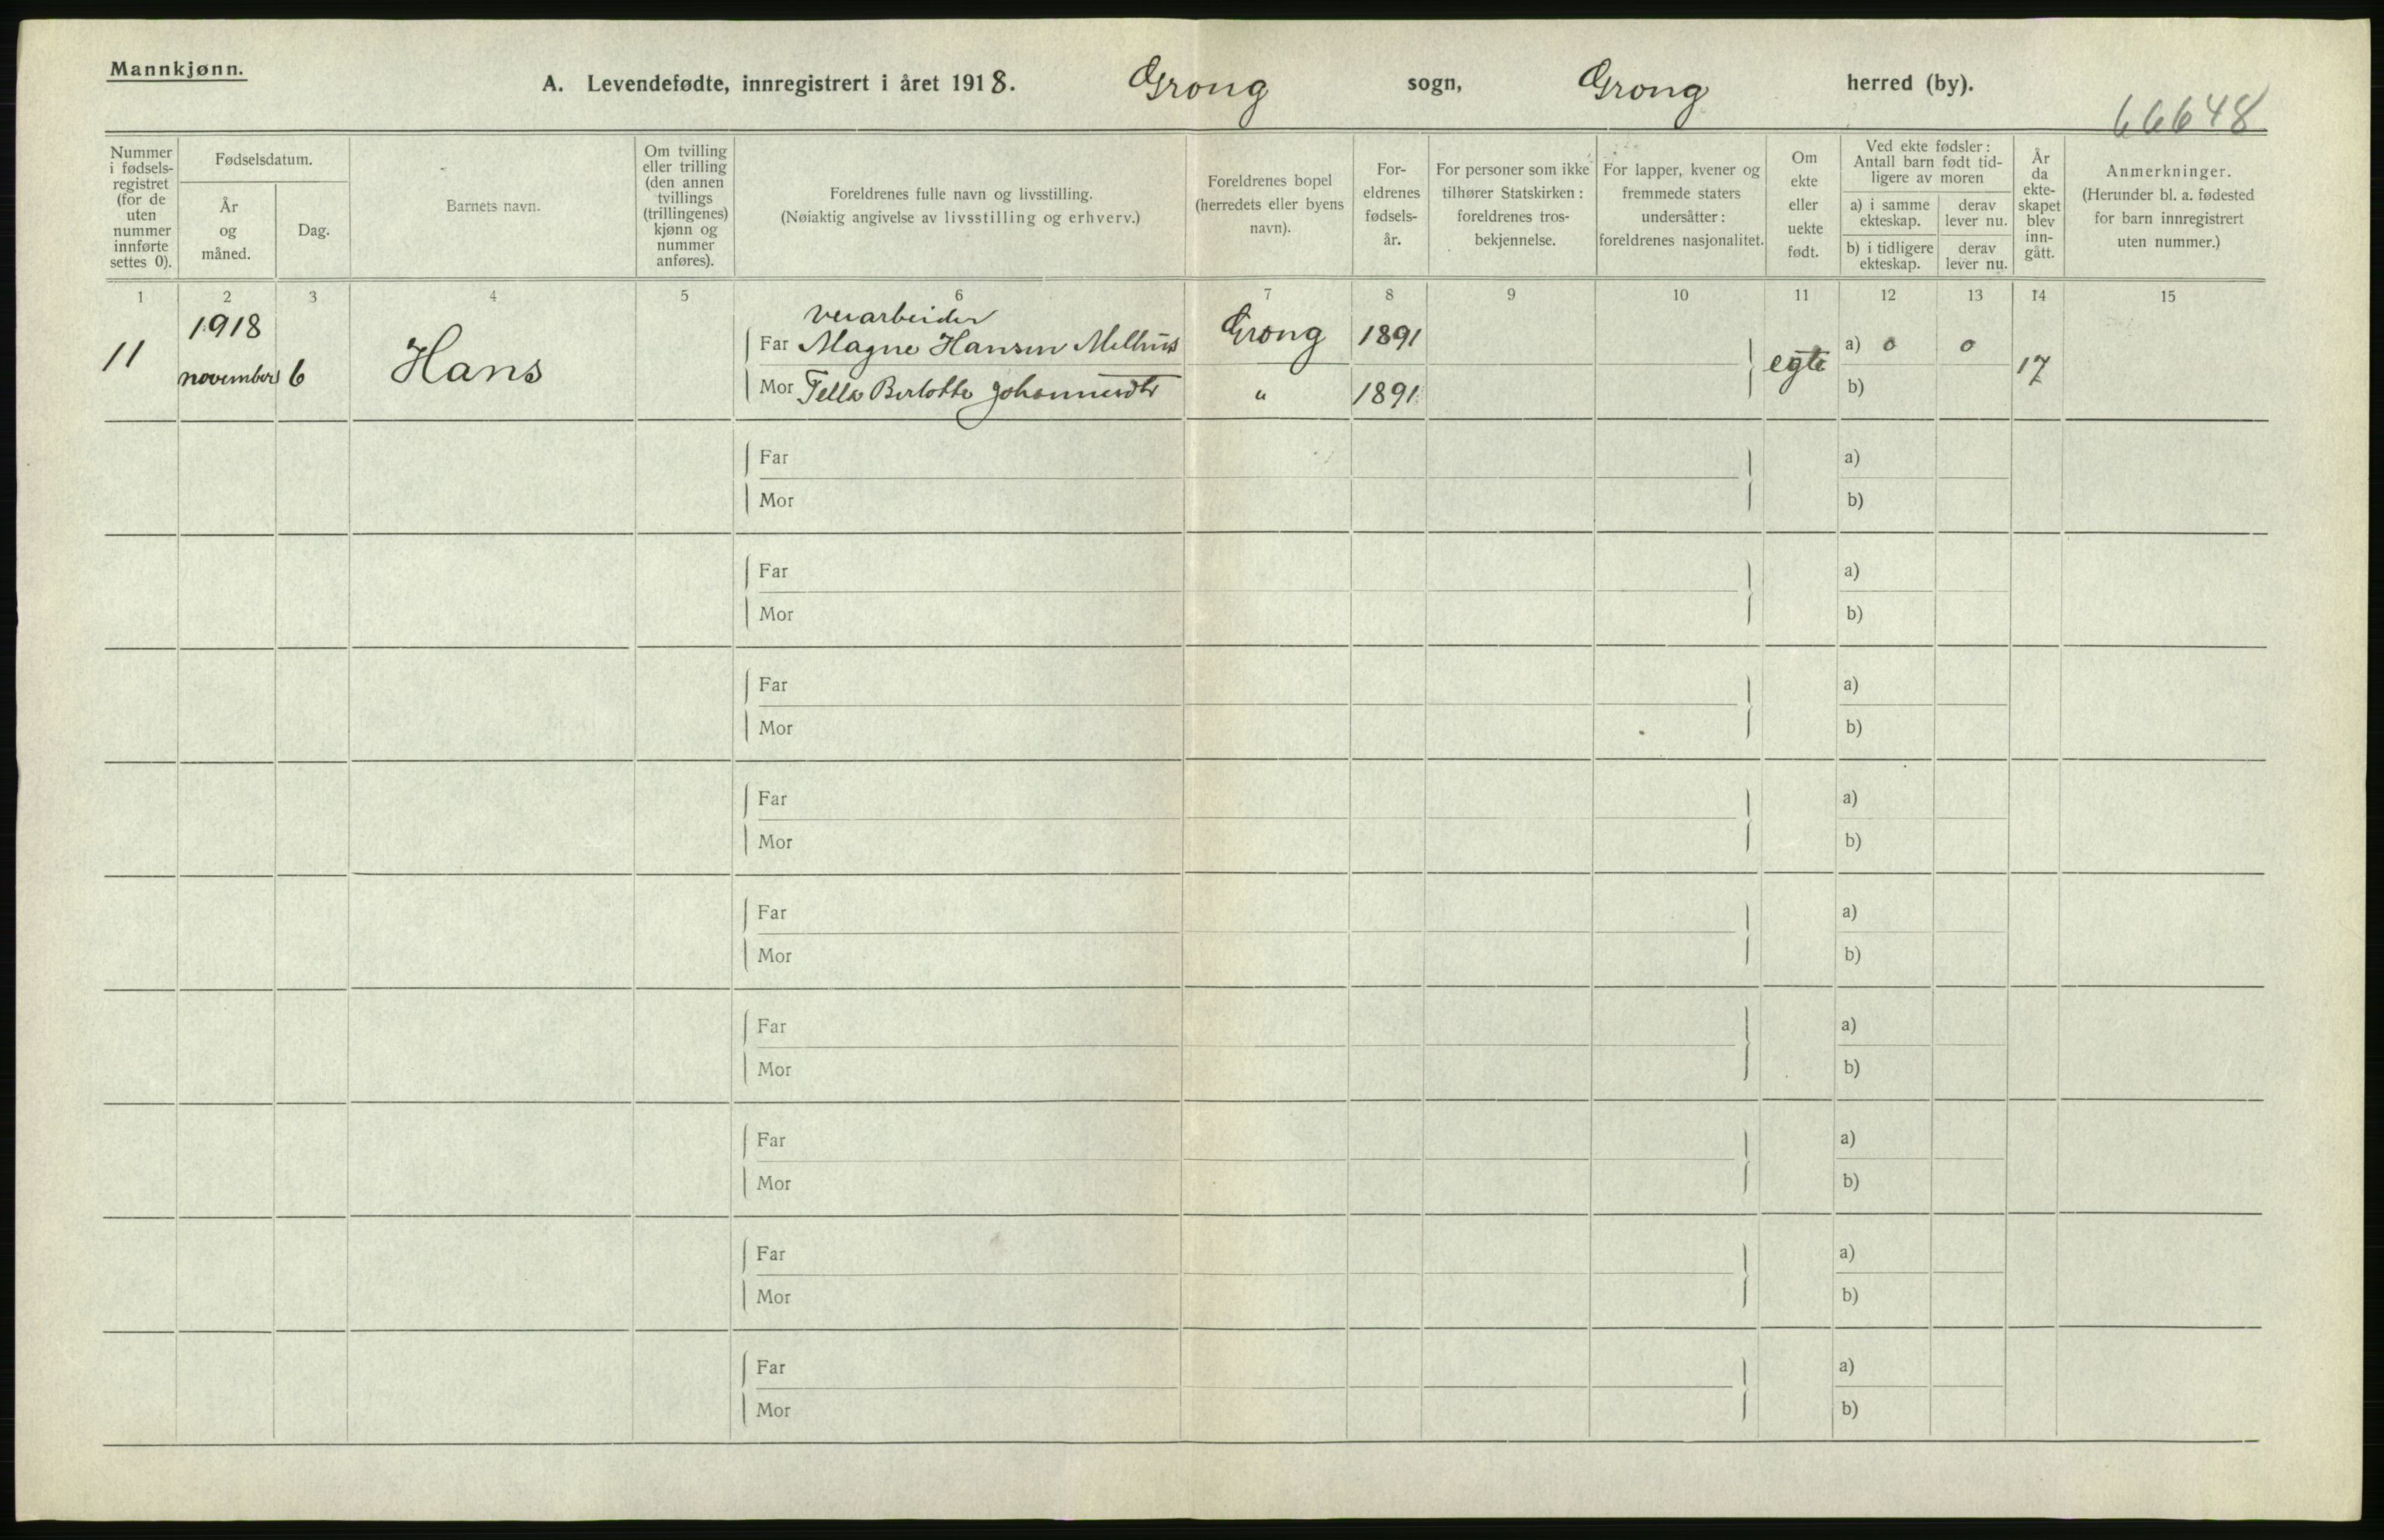 Mannkjønn.
A. Levendefødte, innregistrert i året 1918. Grong sogn, Grong herred (by).
66648
Nummer i fødsels-registret (for de uten nummer innførte settes 0).
Fødselsdatum.
År og måned.
Dag.
Barnets navn.
Om tvilling eller trilling (den annen tvillings (trillingenes) kjønn og nummer anføres).
Foreldrenes fulle navn og livsstilling.
(Nøiaktig angivelse av livsstilling og erhverv.)
Foreldrenes bopel (herredets eller byens navn).
For-eldrenes fødsels-år.
For personer som ikke tilhører Statskirken: foreldrenes tros-bekjennelse.
For lapper, kvener og fremmede staters undersåtter: foreldrenes nasjonalitet.
Om ekte eller uekte født.
Ved ekte fødsler: Antall barn født tid-ligere av moren
a) i samme ekteskap.
derav lever nu.
b) i tidligere ekteskap.
derav lever nu.
År da ekte-skapet blev inn-gått.
Anmerkninger.
(Herunder bl. a. fødested for barn innregistrert uten nummer.)
1 2 3 4 5 6 7 8 9 10 11 12 13 14 15
1918
veiarbeider
11 november 6 Hans
Far Magne Hansen Melhus Grong 1891 egte a) 0 0 17
Mor Johannesdtr " 1891 b)
Far a)
Mor b)
Far a)
Mor b)
Far a)
Mor b)
Far a)
Mor b)
Far a)
Mor b)
Far a)
Mor b)
Far a)
Mor b)
Far a)
Mor b)
Far a)
Mor b)